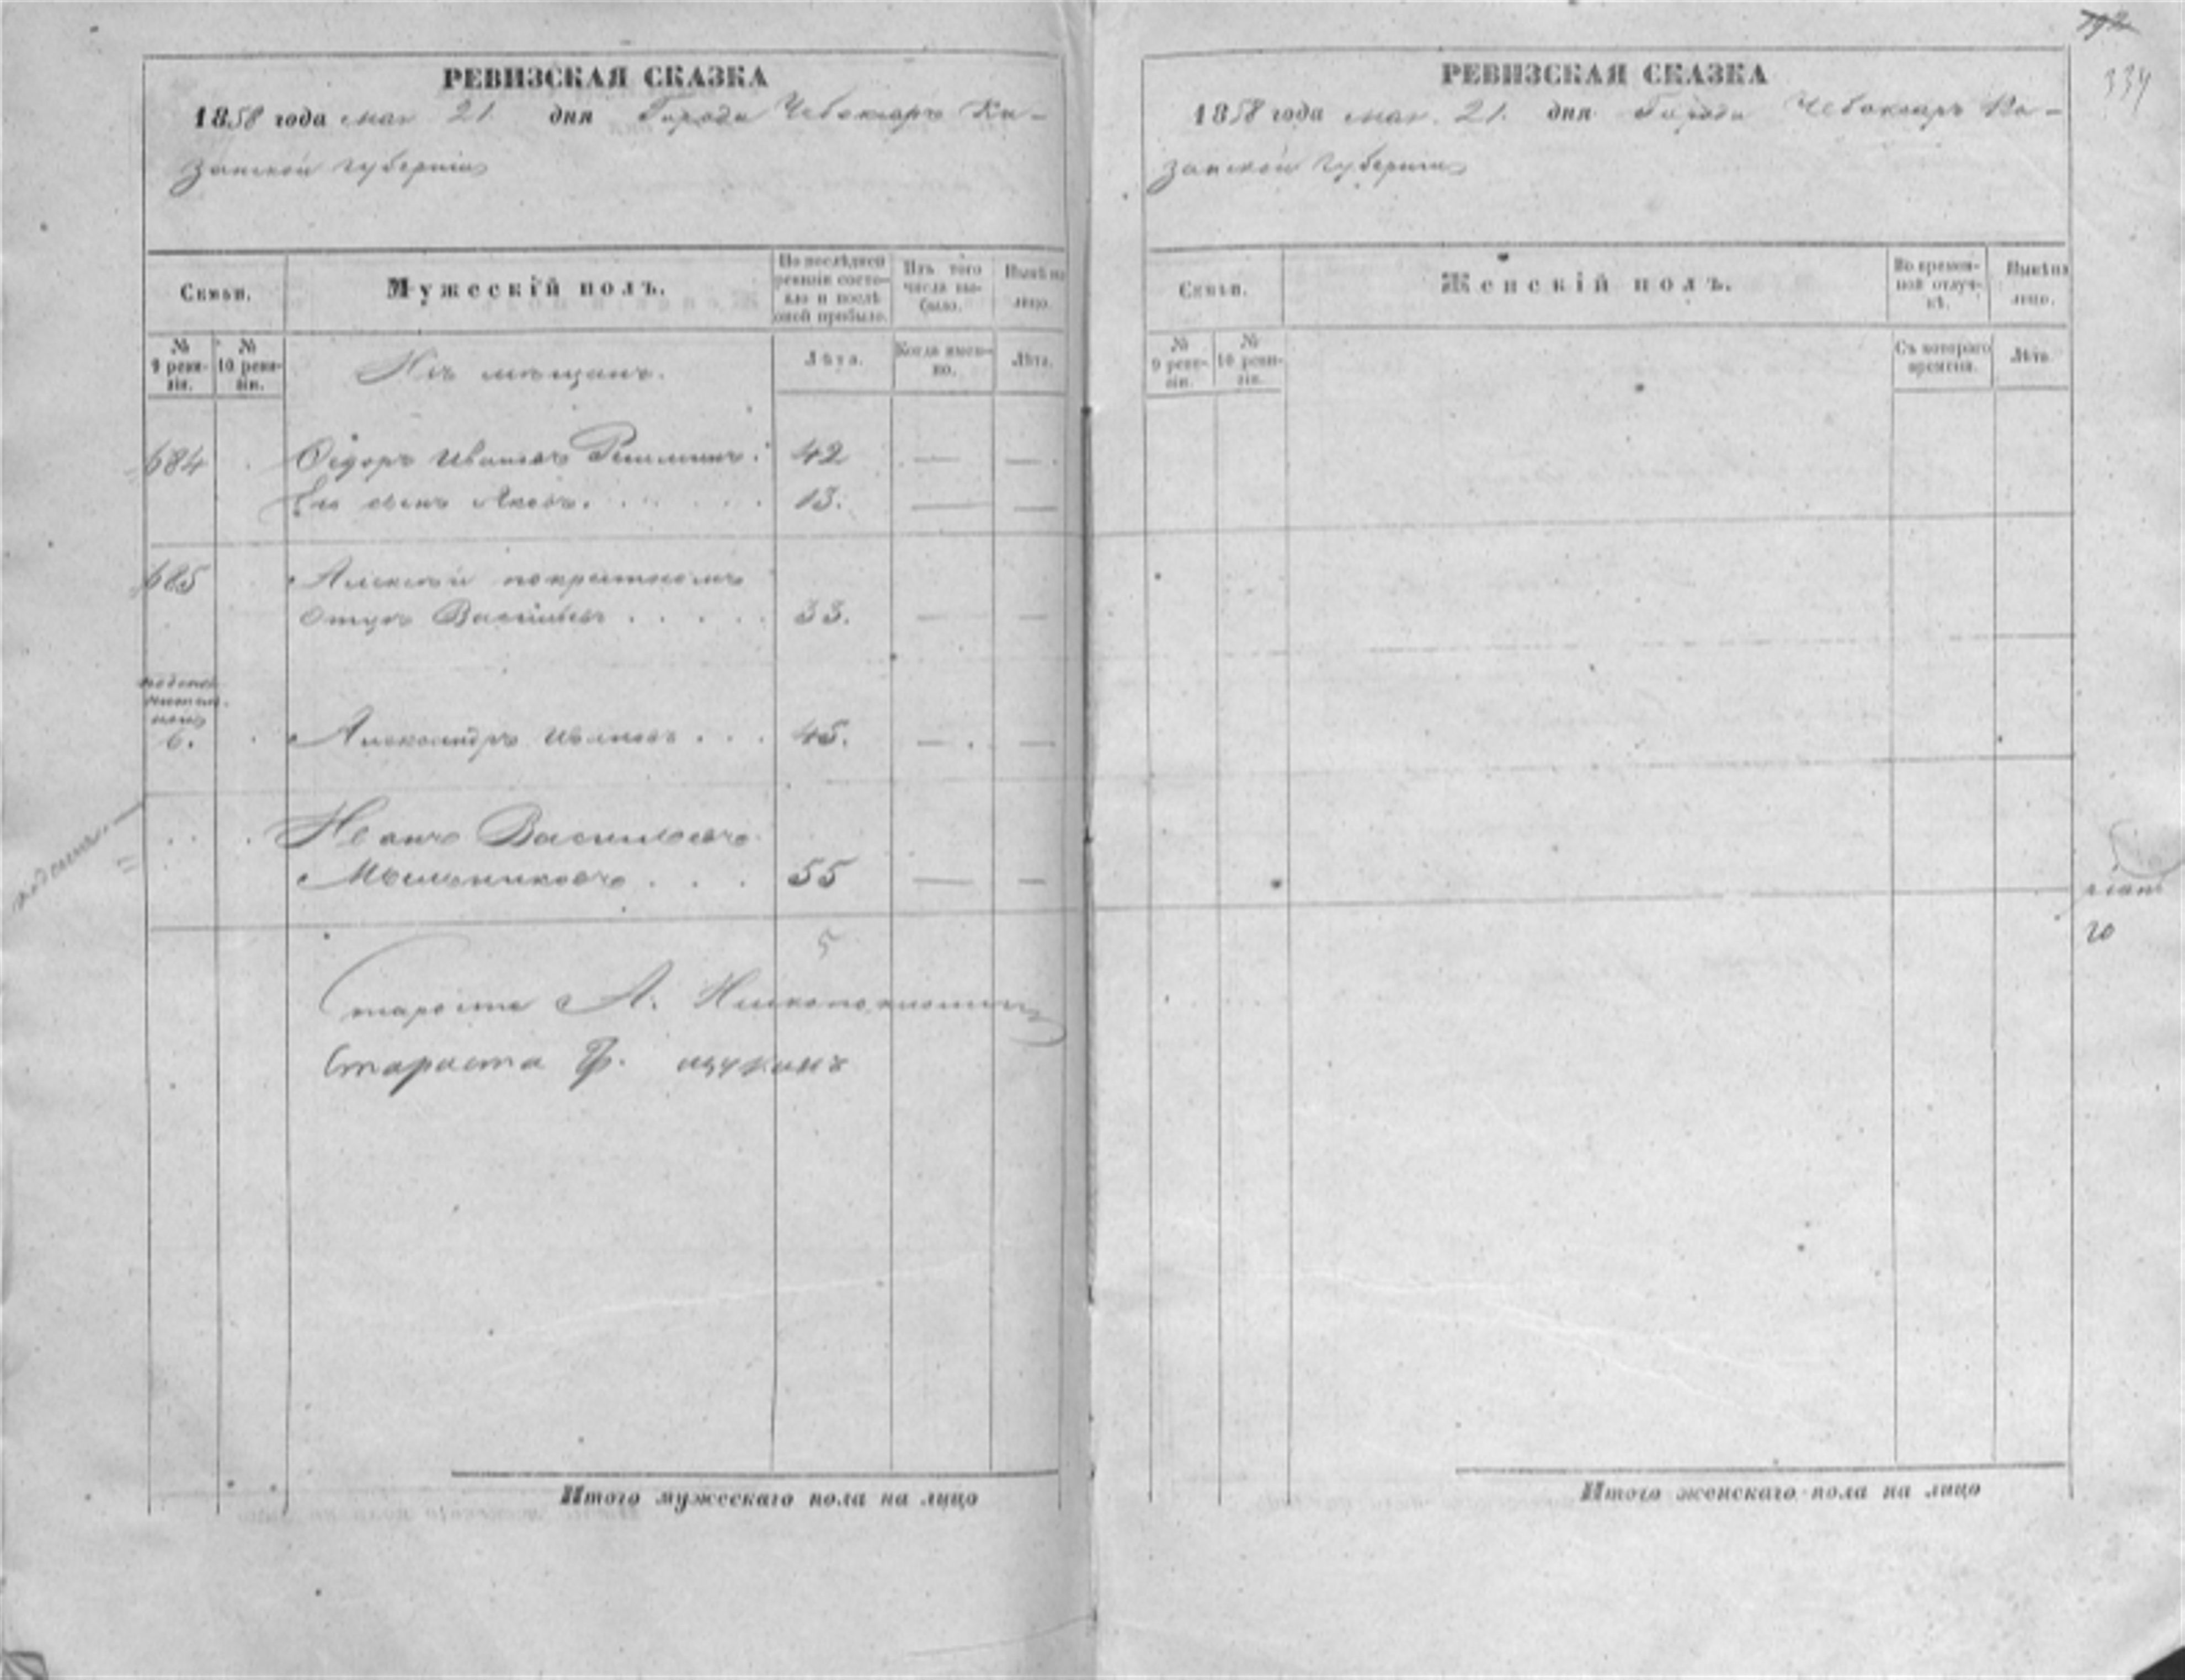 РЕВИЗСКАЯ СКАЗКА
1858 года мая 21 дня Города Чебоксаръ Ка-
занской губерніи
Семьи.
Мужескій полъ.
По послѣдней ревизіи состояло и послѣ оной прибыло.
Изъ того числа выбыло.
Нынѣ на лицо.
№ 9 ревизіи.
№ 10 ревизіи.
Изъ мѣщанъ.
Лѣта.
Когда именно.
Лѣта.
684 Ѳедоръ Ивановъ 42 — —
Его сынъ Яковъ. 13. — —
685 Алексѣй по крестному
отцу Васильевъ 33. — —
6. Александръ Ивановъ 45. — —
Иванъ Васильевъ
Мыльниковъ 55 — —
5
Староста А.
Стараста Ф. щукинъ
Итого мужескаго пола на лицо
334
РЕВИЗСКАЯ СКАЗКА
1858 года мая. 21. дня Города Чебоксаръ Ка-
занской губерніи
Семьи.
Женскій полъ.
Во временной отлучкѣ.
Нынѣ на лицо.
№ 9 ревизіи.
№ 10 ревизіи.
Съ котораго времени.
Лѣта.
го
Итого женскаго пола на лицо